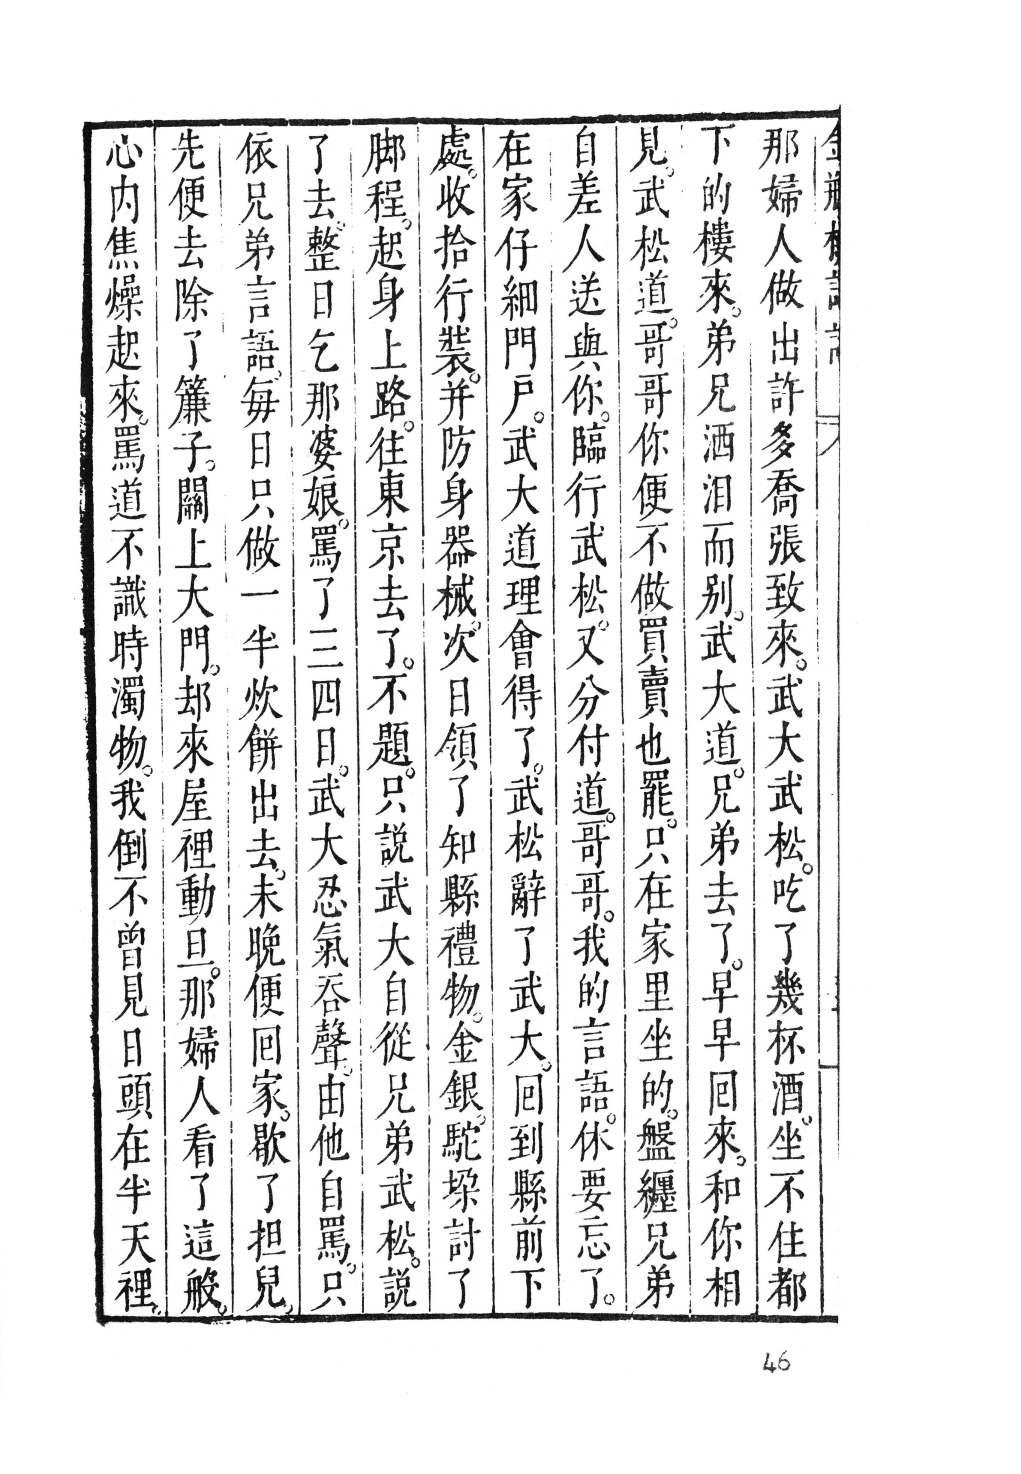 那婦人做出許多喬張致來。武大武松。吃了幾杯酒。坐不住都
下的樓來。弟兄洒泪而别。武大道。兄弟去了。早早回來。和你相
見。武松道。哥哥你便不做買賣也罷。只在家里坐的。盤纏兄弟
自差人送與你。臨行武松。又分付道。哥哥。我的言語。休要忘了。
在家仔細門户。武大道理會得了。武松辭了武大。回到縣前下
處。收拾行裝。并防身器械。次日領了知縣禮物。金銀。駝垛討了
脚程。起身上路。往東京去了。不題。只説武大自從兄弟武松。説
了去。整日乞那婆娘。罵了三四日。武大忍氣吞聲。由他自罵。只
依兄弟言語。每日只做一半炊餅出去。未晚便回家。歇了担兒。
先便去除了簾子。關上大門。却來屋裡動旦。那婦人看了這般。
心内焦燥起來。罵道不識時濁物。我倒不曾見日頭在半天裡。
46